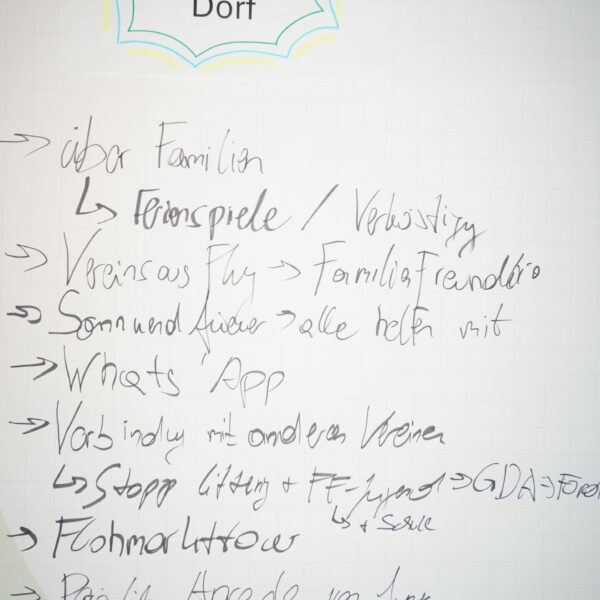 Dorf
→ über Familien
↳ Ferienspiele / Verköstigung
→ Vereinsausflug → Familienfreundlich
→ Sonnwendfeier → alle helfen mit
→ Whats App
→ Verbindung mit anderen Vereinen
↳ Stopp littering + FF-Jugend → GDA →
↳ + Schule
→ Flohmarkttour
→